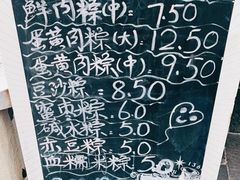 鲜肉粽(中): 7.50
蛋黄肉粽(大): 12.50
蛋黄肉粽(中) 9.50
豆沙粽: 8.50
蜜枣粽: 6.0
碱水粽: 5.0
赤豆粽: 5.0
血糯米粽 5.0